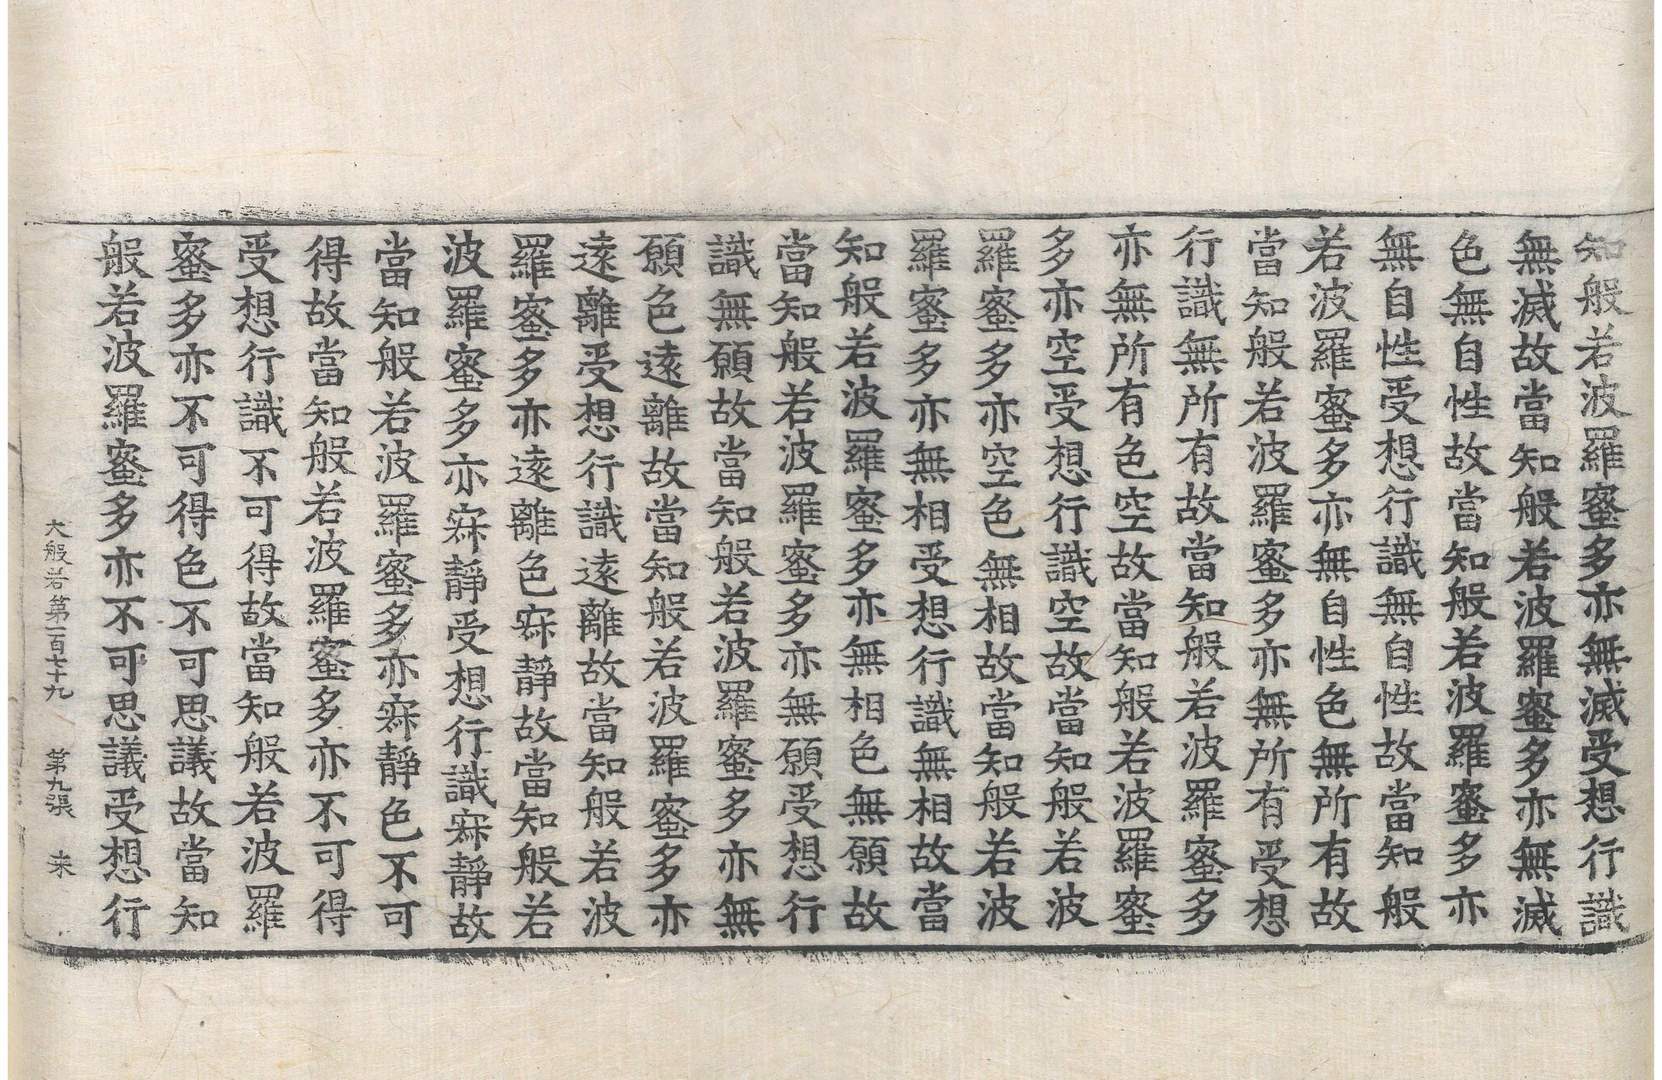 知般若波羅蜜多亦無滅受想行識
無滅故當知般若波羅蜜多亦無滅
色無自性故當知般若波羅蜜多亦
無自性受想行識無自性故當知般
若波羅蜜多亦無自性色無所有故
當知般若波羅蜜多亦無所有受想
行識無所有故當知般若波羅蜜多
亦無所有色空故當知般若波羅蜜
多亦空受想行識空故當知般若波
羅蜜多亦空色無相故當知般若波
羅蜜多亦無相受想行識無相故當
知般若波羅蜜多亦無相色無願故
當知般若波羅蜜多亦無願受想行
識無願故當知般若波羅蜜多亦無
願色遠離故當知般若波羅蜜多亦
遠離受想行識遠離故當知般若波
羅蜜多亦遠離色寂靜故當知般若
波羅蜜多亦寂靜受想行識寂靜故
當知般若波羅蜜多亦寂靜色不可
得故當知般若波羅蜜多亦不可得
受想行識不可得故當知般若波羅
蜜多亦不可得色不可思議故當知
般若波羅蜜多亦不可思議受想行
大般若第一百七十九 第九張 来